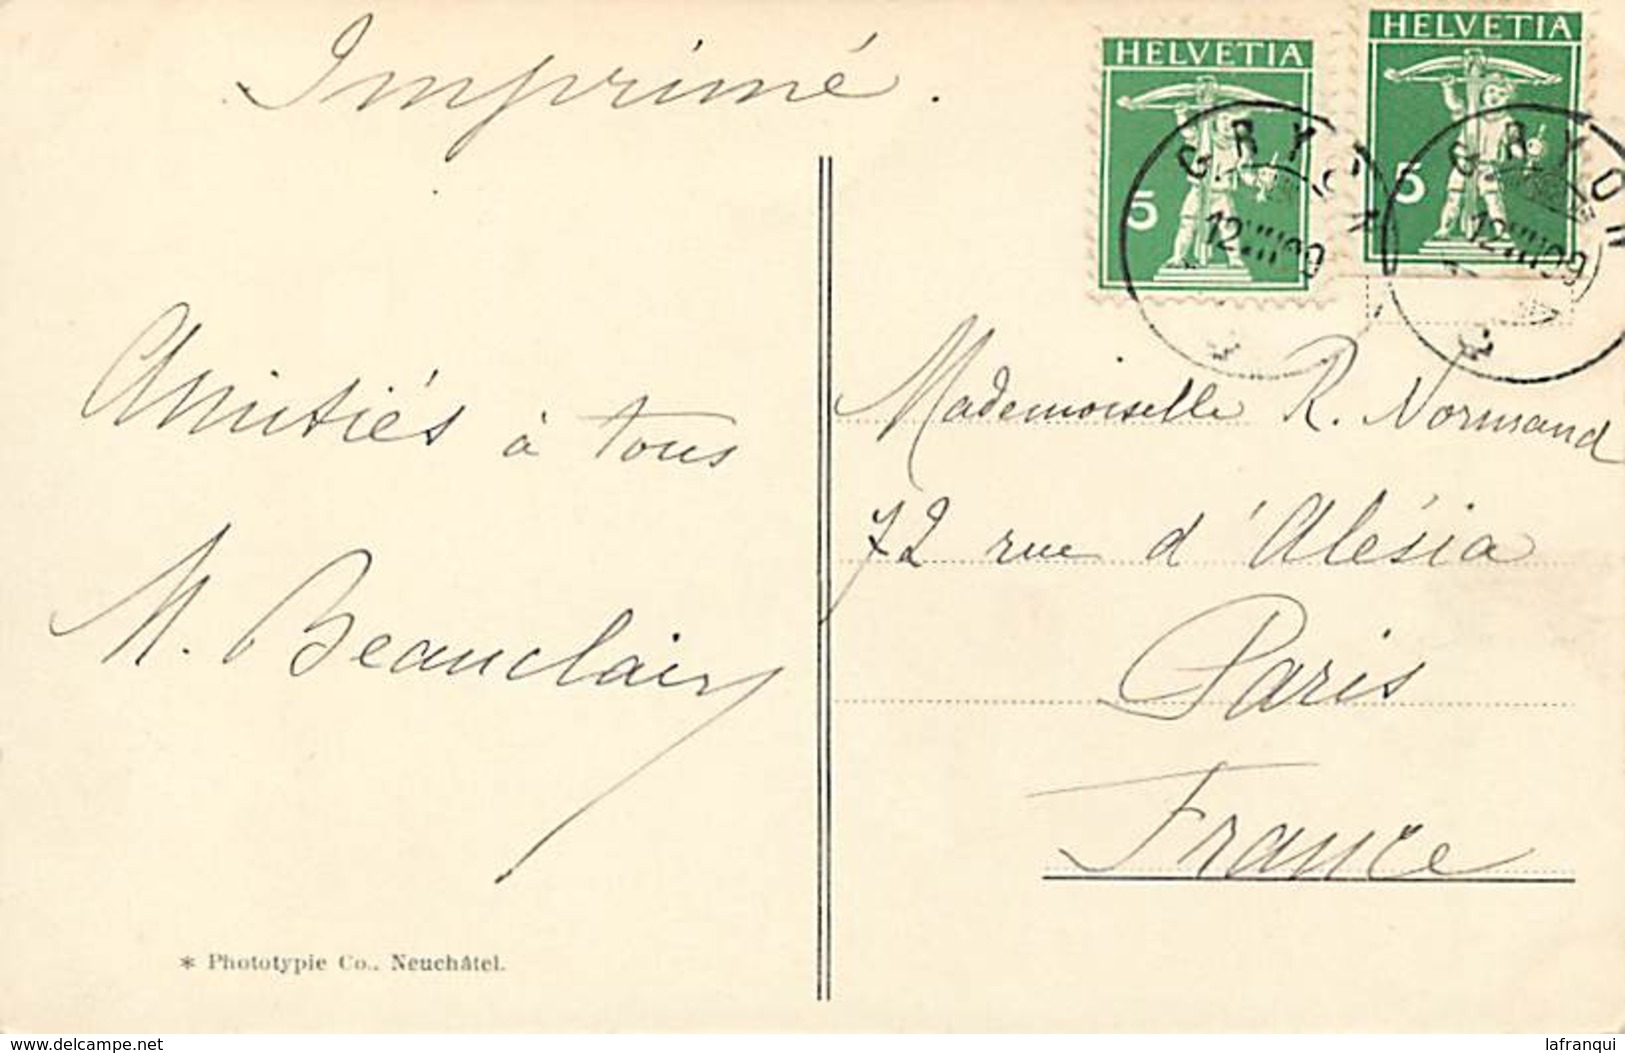 Imprimé.
HELVETIA
5
HELVETIA
5
GRYON
12 VIII 09
GRYON
12 VIII 09
Amitiés à tous
M. Beauclair
Mademoiselle R. Normand
72 rue d'Alésia
Paris
France
* Phototypie Co., Neuchâtel.
www.delcampe.net
lafranqui